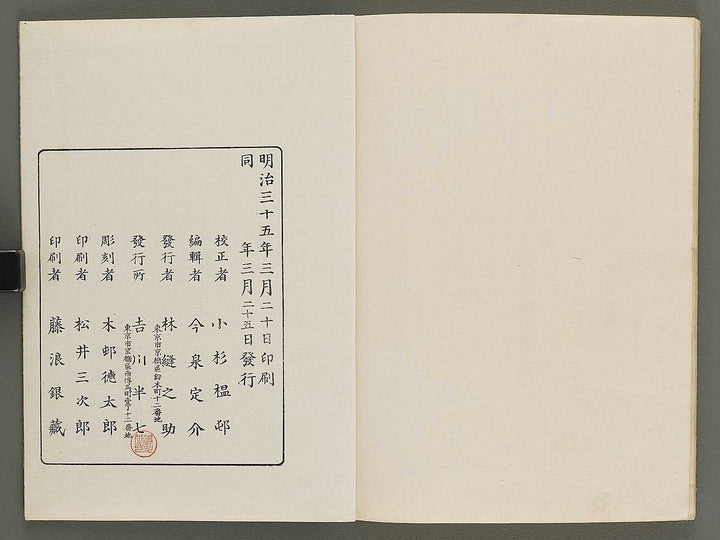 明治三十五年三月二十日印刷
同年三月二十五日發行
校正者 小杉榲邨
編輯者 今泉定介
發行者 林縫之助
東京市京橋區鈴木町十二番地
發行所 吉川半七
東京市京橋區南傳馬町壹丁十二番地
彫刻者 木邨德太郎
印刷者 松井三次郎
印刷者 藤浪銀藏